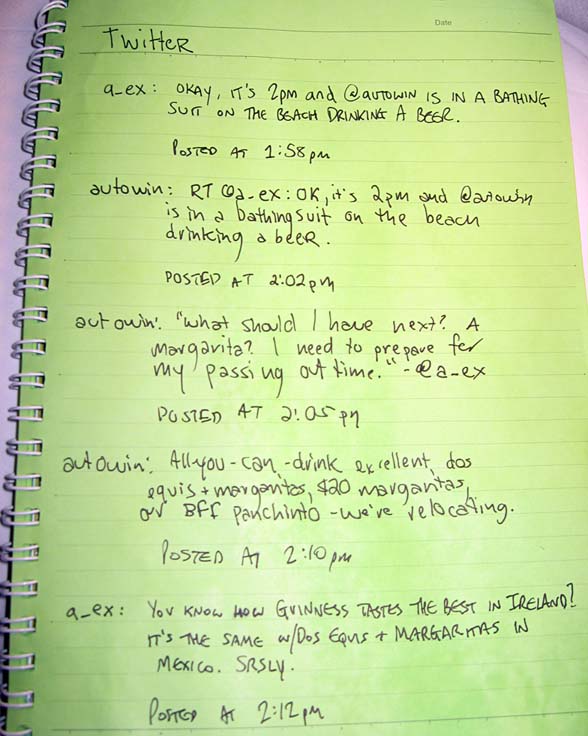 Date
Twitter
a_ex: OKAY, IT'S 2pm and @autowin IS IN A BATHING
SUIT ON THE BEACH DRINKING A BEER.
POSTED AT 1:58pm
autowin: RT @a_ex: OK, it's 2pm and @autowin
is in a bathing suit on the beach
drinking a beer.
POSTED AT 2:02pm
autowin: "what should I have next? A
margarita? I need to prepare for
my passing out time." - @a_ex
POSTED AT 2:05pm
autowin: All-you-can-drink excellent dos
equis + margaritas, $20 margaritas,
our BFF panchinto - we're relocating.
POSTED AT 2:10pm
a_ex: YOU KNOW HOW GUINNESS TASTES THE BEST IN IRELAND?
IT'S THE SAME w/DOS EQUIS + MARGARITAS IN
MEXICO. SRSLY.
POSTED AT 2:12pm